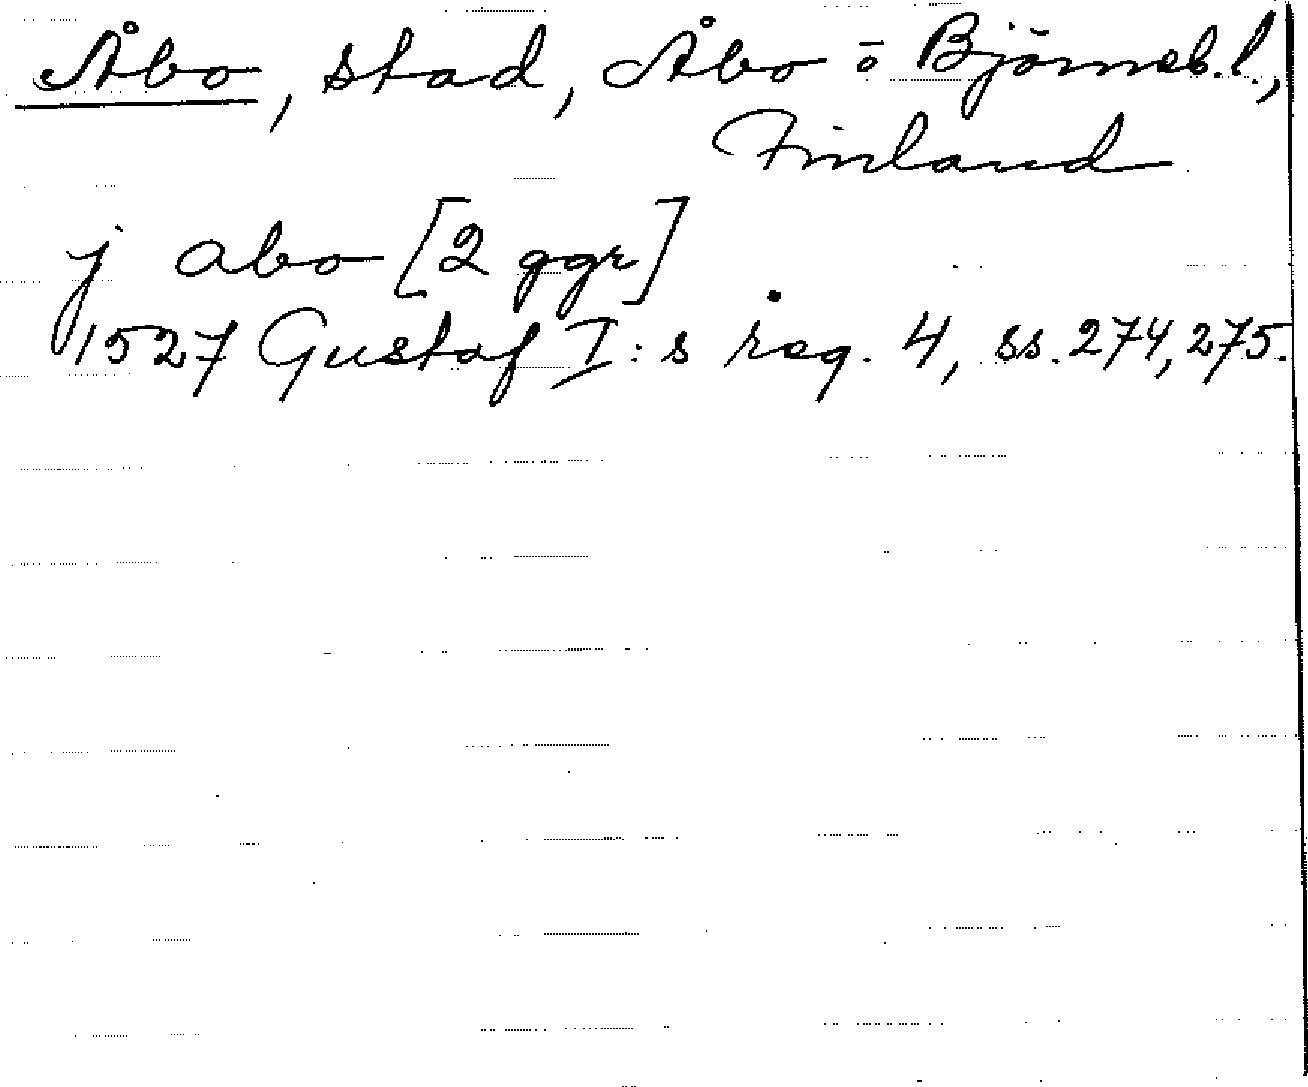 Åbo, stad, Åbo o Björneb. l.,
Finland
j abo [2 ggr]
1527 Gustaf I:s reg. 4, ss. 274, 275.